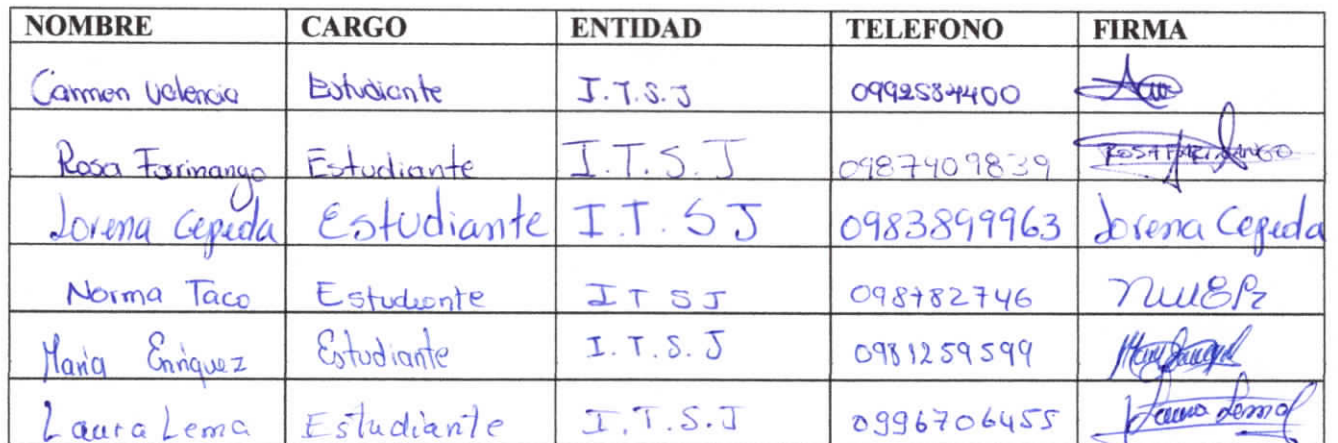 NOMBRE CARGO ENTIDAD TELEFONO FIRMA
Carmen Valencia Estudiante I.T.S.J 0992587400
Rosa Farinango Estudiante I.T.S.J 0987409839 ROSA FARINANGO
Lorena Cepeda Estudiante I.T.SJ 0983899963 Lorena Cepeda
Norma Taco Estudiante ITSJ 098782746
Maria Enriquez Estudiante I.T.S.J 0981259599
Laura Lema Estudiante I.T.S.J 0996706455 Laura Lema